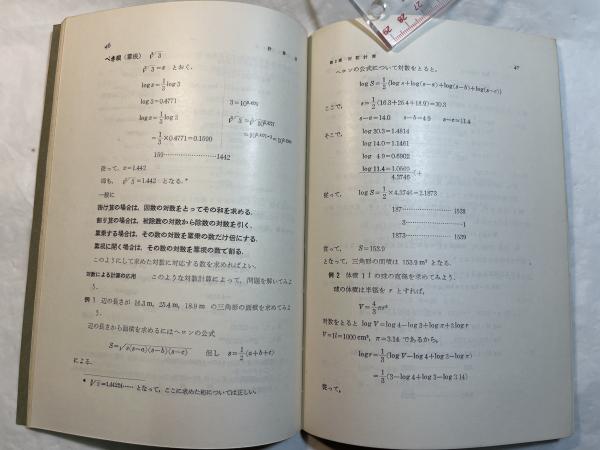 46
計算尺
べき根（冪根） ∛3=x とおく。
log x=1/3 log 3
log 3=0.4771 3=10^0.4771
log x=1/3 log 3
=1/3×0.4771=0.1590
159……………………1442
従って，x=1.442
即ち，∛3=1.442 となる。*
一般に
掛け算の場合は，因数の対数をとってその和を求める。
割り算の場合は，被除数の対数から除数の対数を引く。
累乗する場合は，その数の対数を累乗の数だけ倍にする。
累根に開く場合は，その数の対数を累根の数で割る。
このようにして求めた対数に対応する数を求めればよい。
対数による計算の応用 このような対数計算によって，問題を解いてみよう。
例 1 辺の長さが 16.3 m, 25.4 m, 18.9 m の三角形の面積を求めてみよう。
辺の長さから面積を求めるにはヘロンの公式
S=√s(s−a)(s−b)(s−c) 但し s=1/2(a+b+c)
による。
* ∛3=1.44224…… となって，ここに求めた値については正しい。
47
ヘロンの公式について対数をとると，
log S=1/2{log s+log(s−a)+log(s−b)+log(s−c)}
ここで， s=1/2(16.3+25.4+18.9)=30.3
s−a=14.0 s−b=4.9 s−c=11.4
そこで， log 30.3=1.4814
log 14.0=1.1461
log 4.9=0.6902
log 11.4=1.0569
4.3746 (+
従って， log S=1/2×4.3746=2.1873
187……………………1538
3……………………1
1873……………………1539
従って， S=153.9
となって，三角形の面積は 153.9 m² となる。
例 2 体積 1 l の球の直径を求めてみよう。
球の体積は半径を r とすれば，
V=4/3 πr³
対数をとると log V=log 4−log 3+log π+3 log r
V=1l=1000 cm³, π=3.14 であるから，
log r=1/3(log V−log 4+log 3−log π)
=1/3(3−log 4+log 3−log 3.14)
従って，
29
28
27